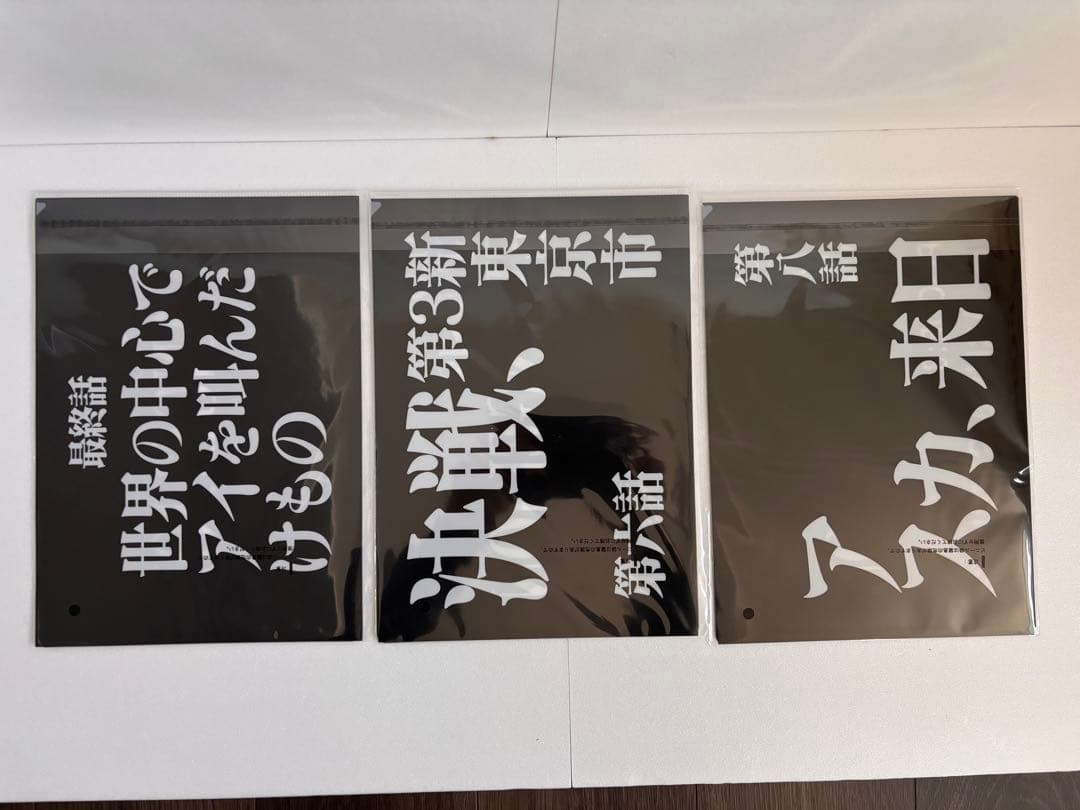 最終話
世界の中心で
アイを叫んだ
けもの
決戦、
第3新
東京市
第六話
第八話
アスカ、
来日